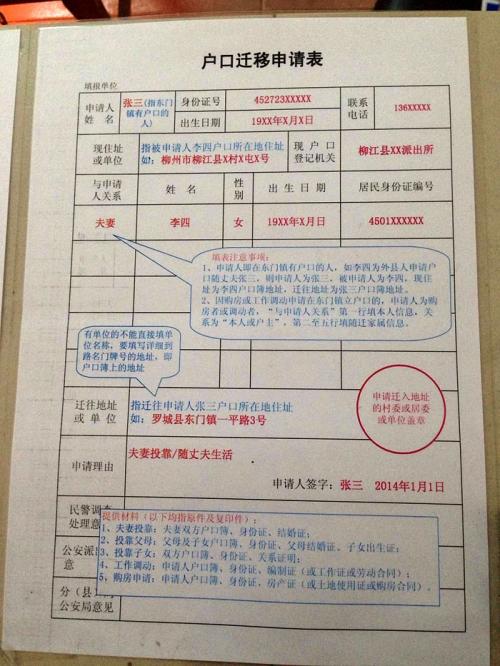 户口迁移申请表
填报单位
申请人姓名 张三(指东门镇有户口的人) 身份证号 452723XXXXX 联系电话 136XXXXX
出生日期 19XX年X月X日
现住址或单位 指被申请人李四户口所在地住址
如：柳州市柳江县X村X屯X号 现户口登记机关 柳江县XX派出所
与申请人关系 姓名 性别 出生日期 居民身份证编号
夫妻 李四 女 19XX年X月X日 4501XXXXXX
填表注意事项：
1、申请人即在东门镇有户口的人，如李四为外县人申请户
口随丈夫张三，则申请人为张三，被申请人为李四，现住
址为李四户口簿地址，迁往地址为张三户口簿地址。
2、因购房或工作调动申请在东门镇立户口的，申请人为购
房者或调动者，“与申请人关系”第一行填本人信息，关
系为“本人或户主”，第二至五行填随迁家属信息。
有单位的不能直接填单
位名称，要填写详细到
路名门牌号的地址，即
户口簿上的地址
迁往地址或单位 指迁往申请人张三户口所在地住址
如：罗城县东门镇一平路3号
申请迁入地址
的村委或居委
或单位盖章
申请理由 夫妻投靠/随丈夫生活
申请人签字：张三 2014年1月1日
民警调查
处理意
提供材料（以下均指原件及复印件）：
1、夫妻投靠：夫妻双方户口簿、身份证、结婚证；
2、投靠父母：父母及子女户口簿、身份证、父母结婚证、子女出生证；
公安派
意
3、投靠子女：双方户口簿、身份证、关系证明；
4、工作调动：申请人户口簿、身份证、编制证（或工作证或劳动合同）；
5、购房申请：申请人户口簿、身份证、房产证（或土地使用证或购房合同）。
分（县
公安局意见